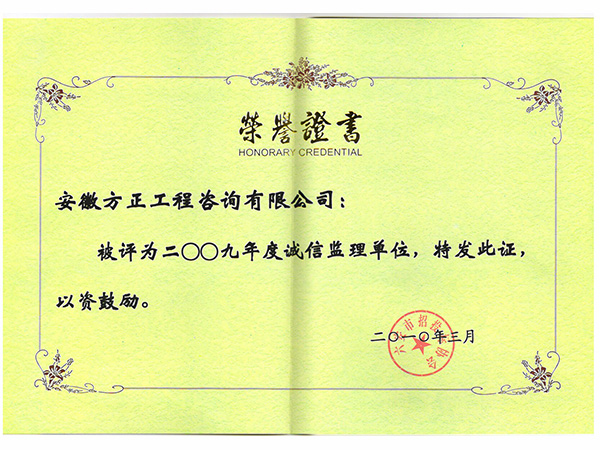 榮譽證書
HONORARY CREDENTIAL
安徽方正工程咨询有限公司：
被评为二〇〇九年度诚信监理单位，特发此证，
以资鼓励。
六安市招投标协会
二〇一〇年三月